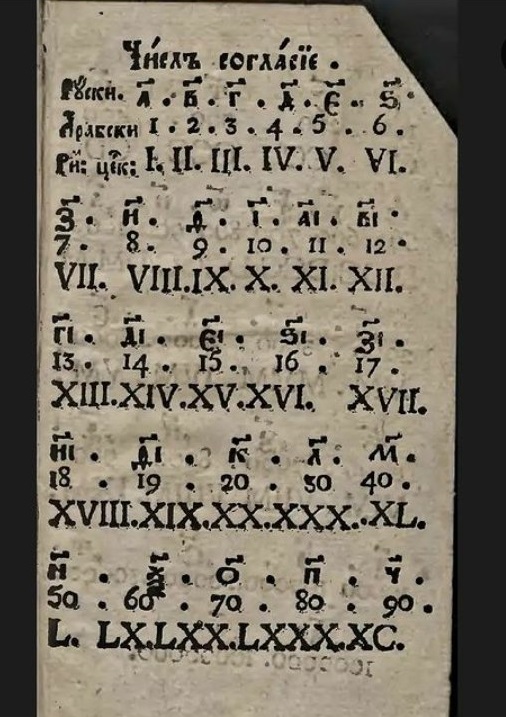 Чи́слъ согла́сїе .
Рꙋ́ски. а҃ . в҃ . г҃ . д҃ . є҃ . ѕ҃ .
А҆рабски 1 . 2 . 3 . 4 . 5 . 6 .
Ри҃: цє҃к: I. II. III. IV. V. VI.
з҃ . и҃ . ѳ҃ . і҃ . а҃і . в҃і .
7 . 8 . 9 . 10 . 11 . 12 .
VII. VIII.IX. X. XI. XII.
г҃і . д҃і . є҃і . ѕ҃і . з҃і .
13 . 14 . 15 . 16 . 17 .
XIII.XIV.XV.XVI. XVII.
и҃і . ѳ҃і . к҃ . л҃ . м҃ .
18 . 19 . 20 . 30 40 .
XVIII.XIX.XX.XXX.XL.
н҃ . ѯ҃ . о҃ . п҃ . ч҃ .
50 . 60 . 70 . 80 . 90 .
L. LX.LXX.LXXX.XC.